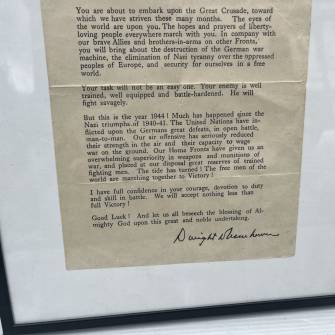 You are about to embark upon the Great Crusade, toward
which we have striven these many months. The eyes of
the world are upon you. The hopes and prayers of liberty-
loving people everywhere march with you. In company with
our brave Allies and brothers-in-arms on other Fronts,
you will bring about the destruction of the German war
machine, the elimination of Nazi tyranny over the oppressed
peoples of Europe, and security for ourselves in a free
world.
Your task will not be an easy one. Your enemy is well
trained, well equipped and battle-hardened. He will
fight savagely.
But this is the year 1944! Much has happened since the
Nazi triumphs of 1940-41. The United Nations have in-
flicted upon the Germans great defeats, in open battle,
man-to-man. Our air offensive has seriously reduced
their strength in the air and their capacity to wage
war on the ground. Our Home Fronts have given us an
overwhelming superiority in weapons and munitions of
war, and placed at our disposal great reserves of trained
fighting men. The tide has turned! The free men of the
world are marching together to Victory!
I have full confidence in your courage, devotion to duty
and skill in battle. We will accept nothing less than
full Victory!
Good Luck! And let us all beseech the blessing of Al-
mighty God upon this great and noble undertaking.
Dwight D Eisenhower